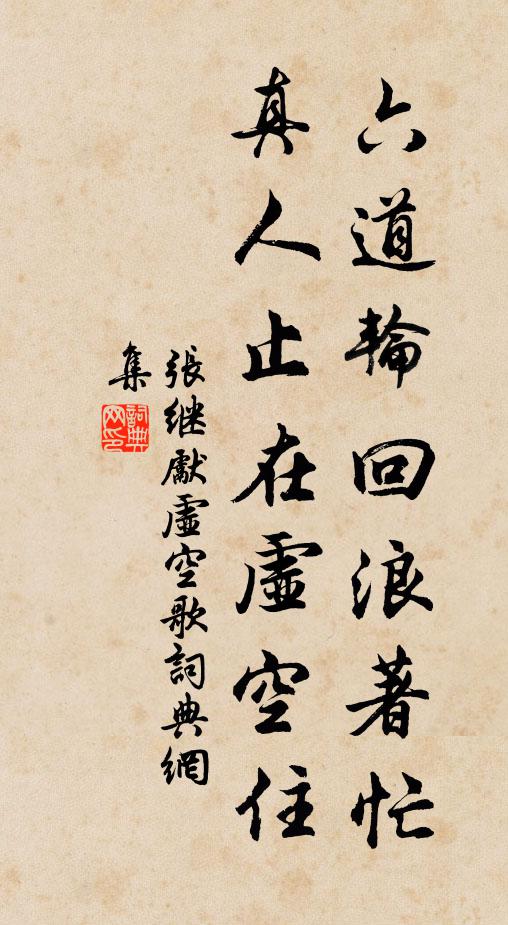 六道輪回浪著忙
真人止在虛空住
張继獻虛空歌詞典網
集
詞典
网印